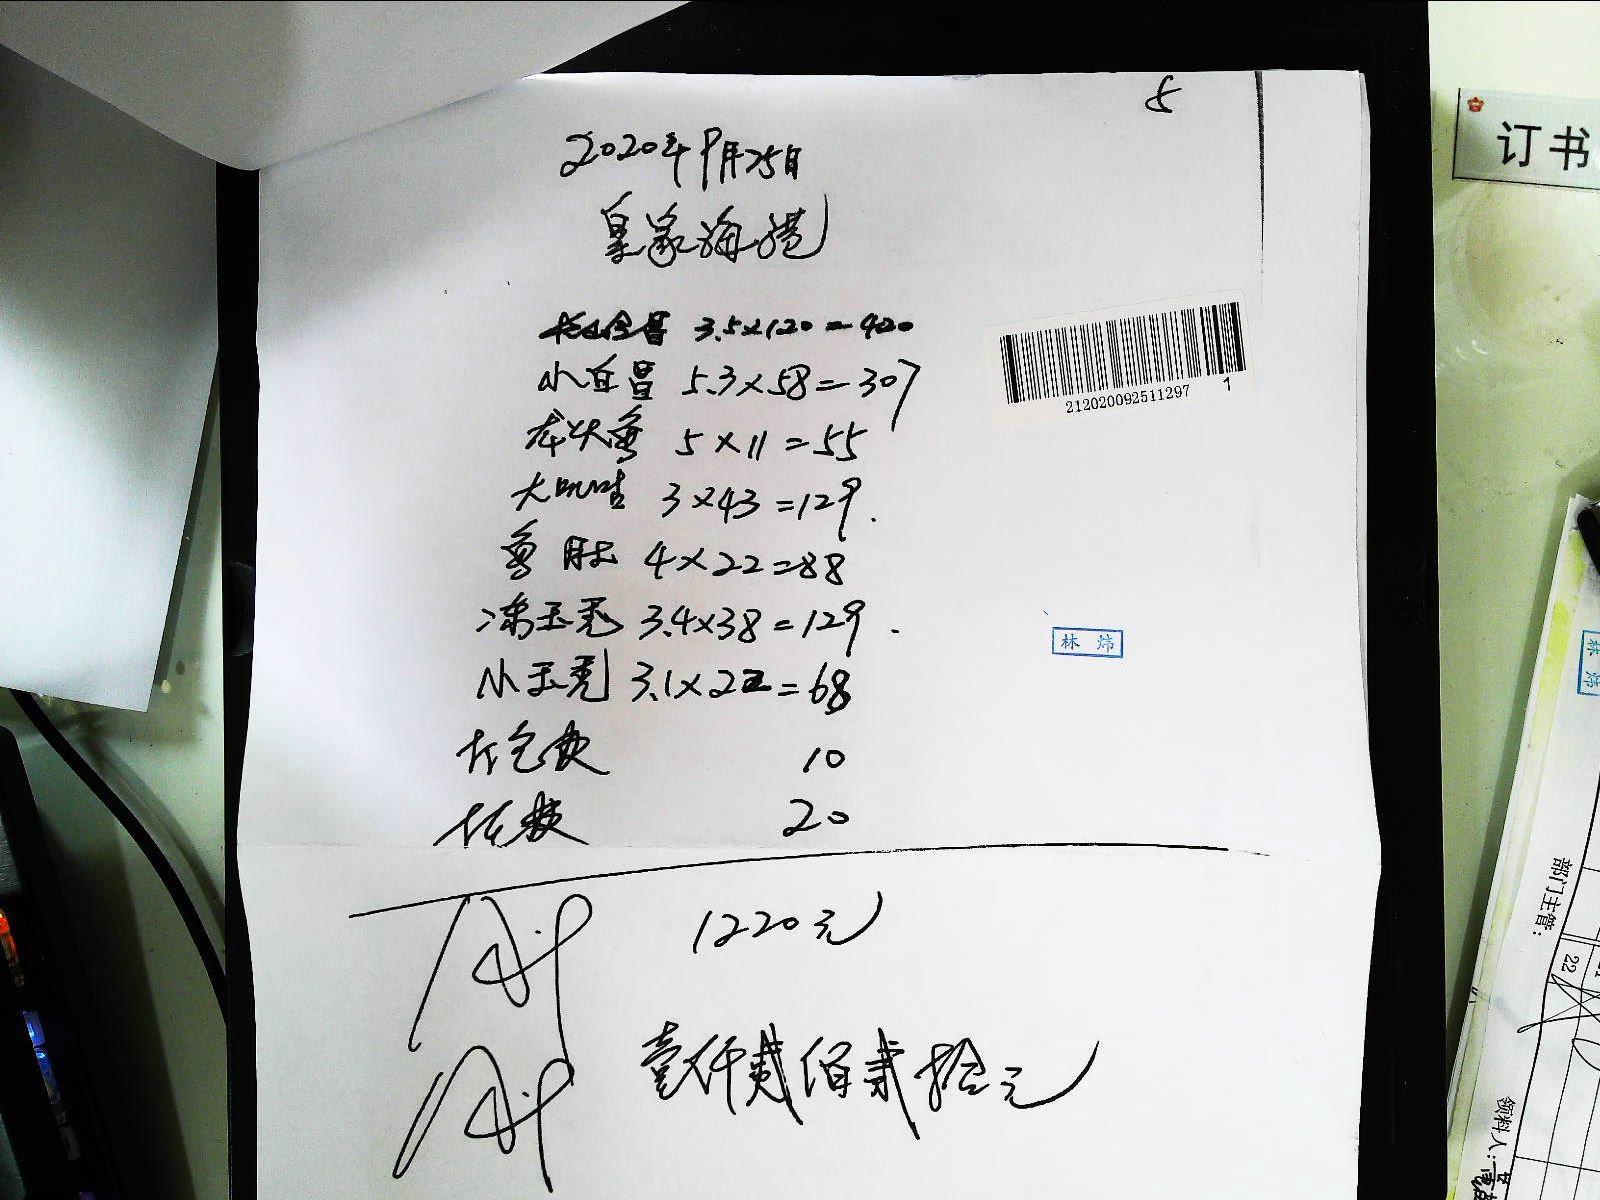 5
2020年9月25日
皇家海港
3.5×120=420
小白昌 5.3×58=307
龙头鱼 5×11=55
大 3×43=129.
鱼肚 4×22=88
冻玉秃 3.4×38=129.
小玉秃 3.1×22=68
打包费 10
20
1220元
壹仟贰佰贰拾元
212020092511297 1
林 炜
订书
林 炜
部门主管:
22
领料人: